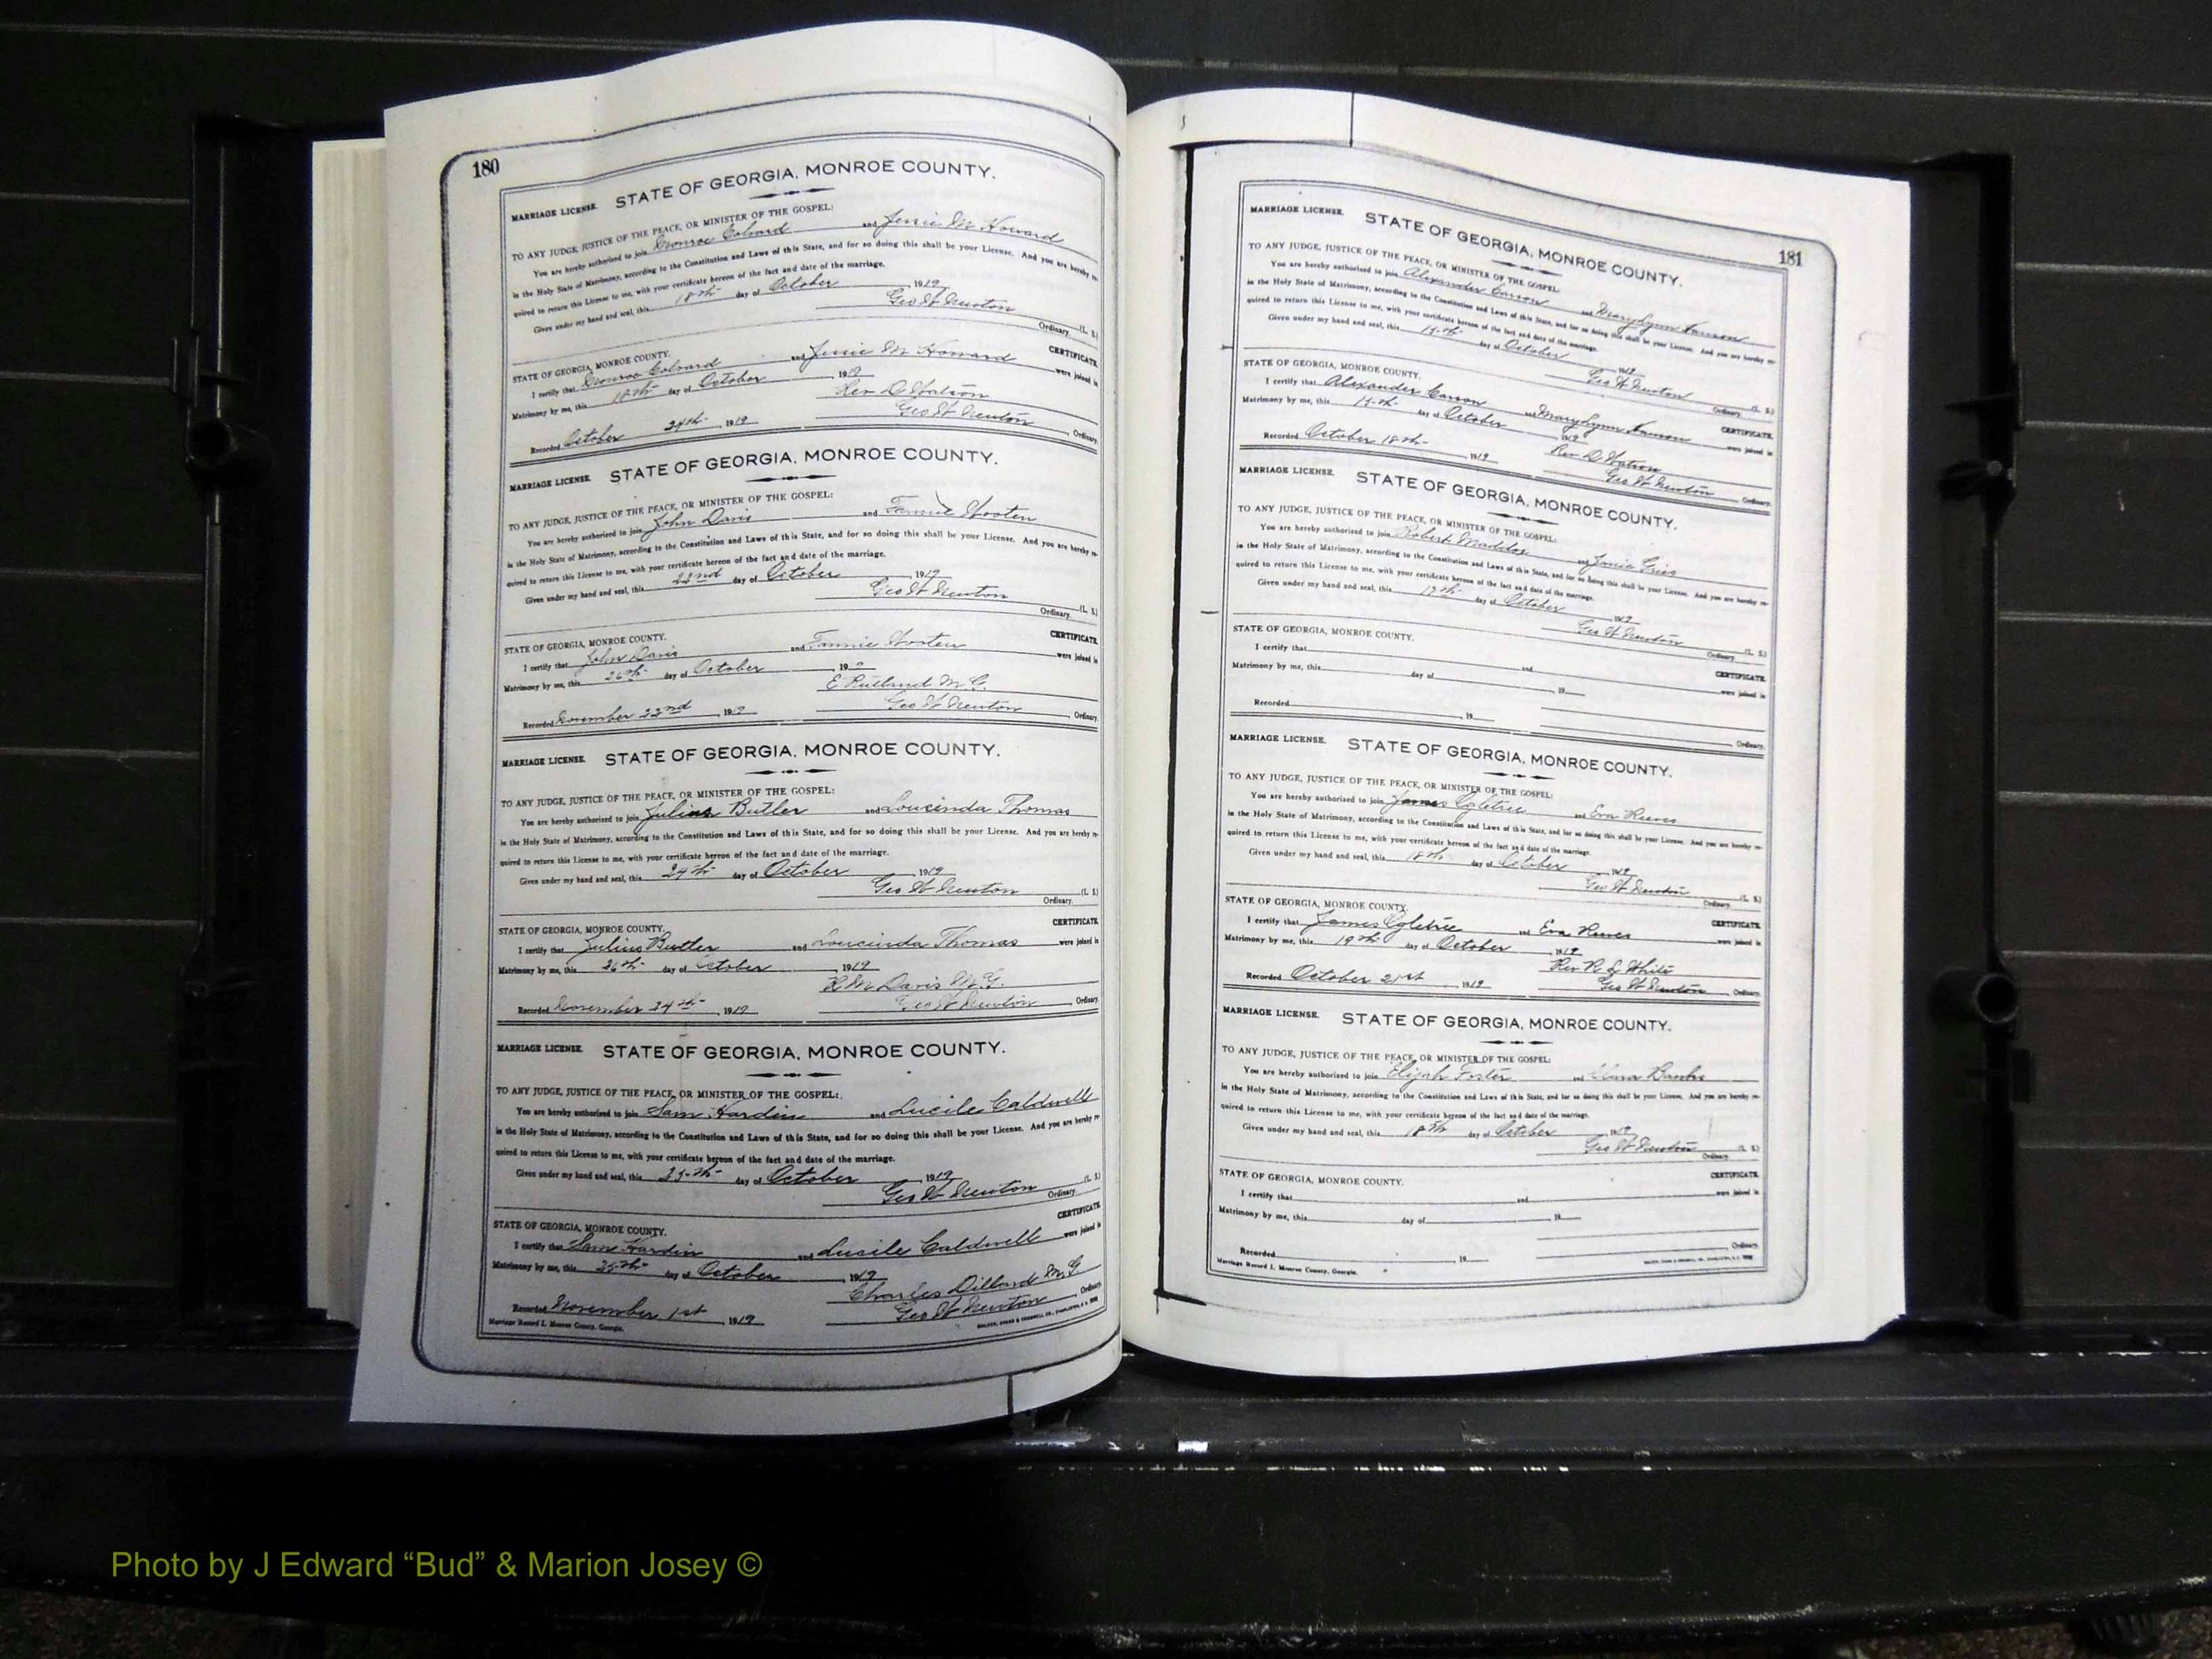 180
STATE OF GEORGIA, MONROE COUNTY.
MARRIAGE LICENSE.
TO ANY JUDGE, JUSTICE OF THE PEACE, OR MINISTER OF THE GOSPEL:
You are hereby authorized to join Monroe Colvard and Jessie M. Howard
in the Holy State of Matrimony, according to the Constitution and Laws of this State, and for so doing this shall be your License. And you are hereby re-
quired to return this License to me, with your certificate hereon of the fact and date of the marriage.
Given under my hand and seal, this 18th day of October 1919
Geo W Newton (L. S.)
Ordinary.
STATE OF GEORGIA, MONROE COUNTY. CERTIFICATE.
I certify that Monroe Colvard and Jessie M Howard were joined in
Matrimony by me, this 18th day of October 1919
Rev D Watson
Recorded October 24th 1919 Geo W Newton Ordinary.
MARRIAGE LICENSE. STATE OF GEORGIA, MONROE COUNTY.
TO ANY JUDGE, JUSTICE OF THE PEACE, OR MINISTER OF THE GOSPEL:
You are hereby authorized to join John Davis and Fannie Wooten
in the Holy State of Matrimony, according to the Constitution and Laws of this State, and for so doing this shall be your License. And you are hereby re-
quired to return this License to me, with your certificate hereon of the fact and date of the marriage.
Given under my hand and seal, this 22nd day of October 1919
Geo W Newton (L. S.)
Ordinary.
STATE OF GEORGIA, MONROE COUNTY. CERTIFICATE.
I certify that John Davis and Fannie Wooten were joined in
Matrimony by me, this 26th day of October 19
E Rutland M. G.
Recorded November 22nd 19 Geo W Newton Ordinary.
MARRIAGE LICENSE. STATE OF GEORGIA, MONROE COUNTY.
TO ANY JUDGE, JUSTICE OF THE PEACE, OR MINISTER OF THE GOSPEL:
You are hereby authorized to join Julius Butler and Loucinda Thomas
in the Holy State of Matrimony, according to the Constitution and Laws of this State, and for so doing this shall be your License. And you are hereby re-
quired to return this License to me, with your certificate hereon of the fact and date of the marriage.
Given under my hand and seal, this 24th day of October 1919
Geo W Newton (L. S.)
Ordinary.
STATE OF GEORGIA, MONROE COUNTY. CERTIFICATE.
I certify that Julius Butler and Loucinda Thomas were joined in
Matrimony by me, this 26th day of October 1919
Davis M. G.
Recorded November 24th 1919 Geo W Newton Ordinary.
MARRIAGE LICENSE. STATE OF GEORGIA, MONROE COUNTY.
TO ANY JUDGE, JUSTICE OF THE PEACE, OR MINISTER OF THE GOSPEL:
You are hereby authorized to join Sam Hardin and Lucile Caldwell
in the Holy State of Matrimony, according to the Constitution and Laws of this State, and for so doing this shall be your License. And you are hereby re-
quired to return this License to me, with your certificate hereon of the fact and date of the marriage.
Given under my hand and seal, this 25th day of October 1919
Geo W Newton (L. S.)
Ordinary.
STATE OF GEORGIA, MONROE COUNTY. CERTIFICATE.
I certify that Sam Hardin and Lucile Caldwell were joined in
Matrimony by me, this 25th day of October 1919
Charles Dillard M G
Recorded November 1st 1919 Geo W Newton Ordinary.
Marriage Record I. Monroe County, Georgia.
181
MARRIAGE LICENSE. STATE OF GEORGIA, MONROE COUNTY.
TO ANY JUDGE, JUSTICE OF THE PEACE, OR MINISTER OF THE GOSPEL:
You are hereby authorized to join Alexander Carson and Marylynn
in the Holy State of Matrimony, according to the Constitution and Laws of this State, and for so doing this shall be your License. And you are hereby re-
quired to return this License to me, with your certificate hereon of the fact and date of the marriage.
Given under my hand and seal, this 15th day of October 1919
Geo W Newton (L. S.)
Ordinary.
STATE OF GEORGIA, MONROE COUNTY. CERTIFICATE.
I certify that Alexander Carson and Marylynn were joined in
Matrimony by me, this 15th day of October 1919
Rev D Watson
Recorded October 18th 1919 Geo W Newton Ordinary.
MARRIAGE LICENSE. STATE OF GEORGIA, MONROE COUNTY.
TO ANY JUDGE, JUSTICE OF THE PEACE, OR MINISTER OF THE GOSPEL:
You are hereby authorized to join Robert Maddox and Janie
in the Holy State of Matrimony, according to the Constitution and Laws of this State, and for so doing this shall be your License. And you are hereby re-
quired to return this License to me, with your certificate hereon of the fact and date of the marriage.
Given under my hand and seal, this 17th day of October 1919
Geo W Newton (L. S.)
Ordinary.
STATE OF GEORGIA, MONROE COUNTY. CERTIFICATE.
I certify that and were joined in
Matrimony by me, this day of 19
Recorded 19 Ordinary.
MARRIAGE LICENSE. STATE OF GEORGIA, MONROE COUNTY.
TO ANY JUDGE, JUSTICE OF THE PEACE, OR MINISTER OF THE GOSPEL:
You are hereby authorized to join James Ogletree and Eva Reeves
in the Holy State of Matrimony, according to the Constitution and Laws of this State, and for so doing this shall be your License. And you are hereby re-
quired to return this License to me, with your certificate hereon of the fact and date of the marriage.
Given under my hand and seal, this 18th day of October 1919
Geo W Newton (L. S.)
Ordinary.
STATE OF GEORGIA, MONROE COUNTY. CERTIFICATE.
I certify that James Ogletree and Eva Reeves were joined in
Matrimony by me, this 19th day of October 1919
Rev R L White
Recorded October 21st 1919 Geo W Newton Ordinary.
MARRIAGE LICENSE. STATE OF GEORGIA, MONROE COUNTY.
TO ANY JUDGE, JUSTICE OF THE PEACE, OR MINISTER OF THE GOSPEL:
You are hereby authorized to join Elijah Foster and Banks
in the Holy State of Matrimony, according to the Constitution and Laws of this State, and for so doing this shall be your License. And you are hereby re-
quired to return this License to me, with your certificate hereon of the fact and date of the marriage.
Given under my hand and seal, this 18th day of October 1919
Geo W Newton (L. S.)
Ordinary.
STATE OF GEORGIA, MONROE COUNTY. CERTIFICATE.
I certify that and were joined in
Matrimony by me, this day of 19
Ordinary.
Recorded 19
Marriage Record I. Monroe County, Georgia.
Photo by J Edward “Bud” & Marion Josey ©